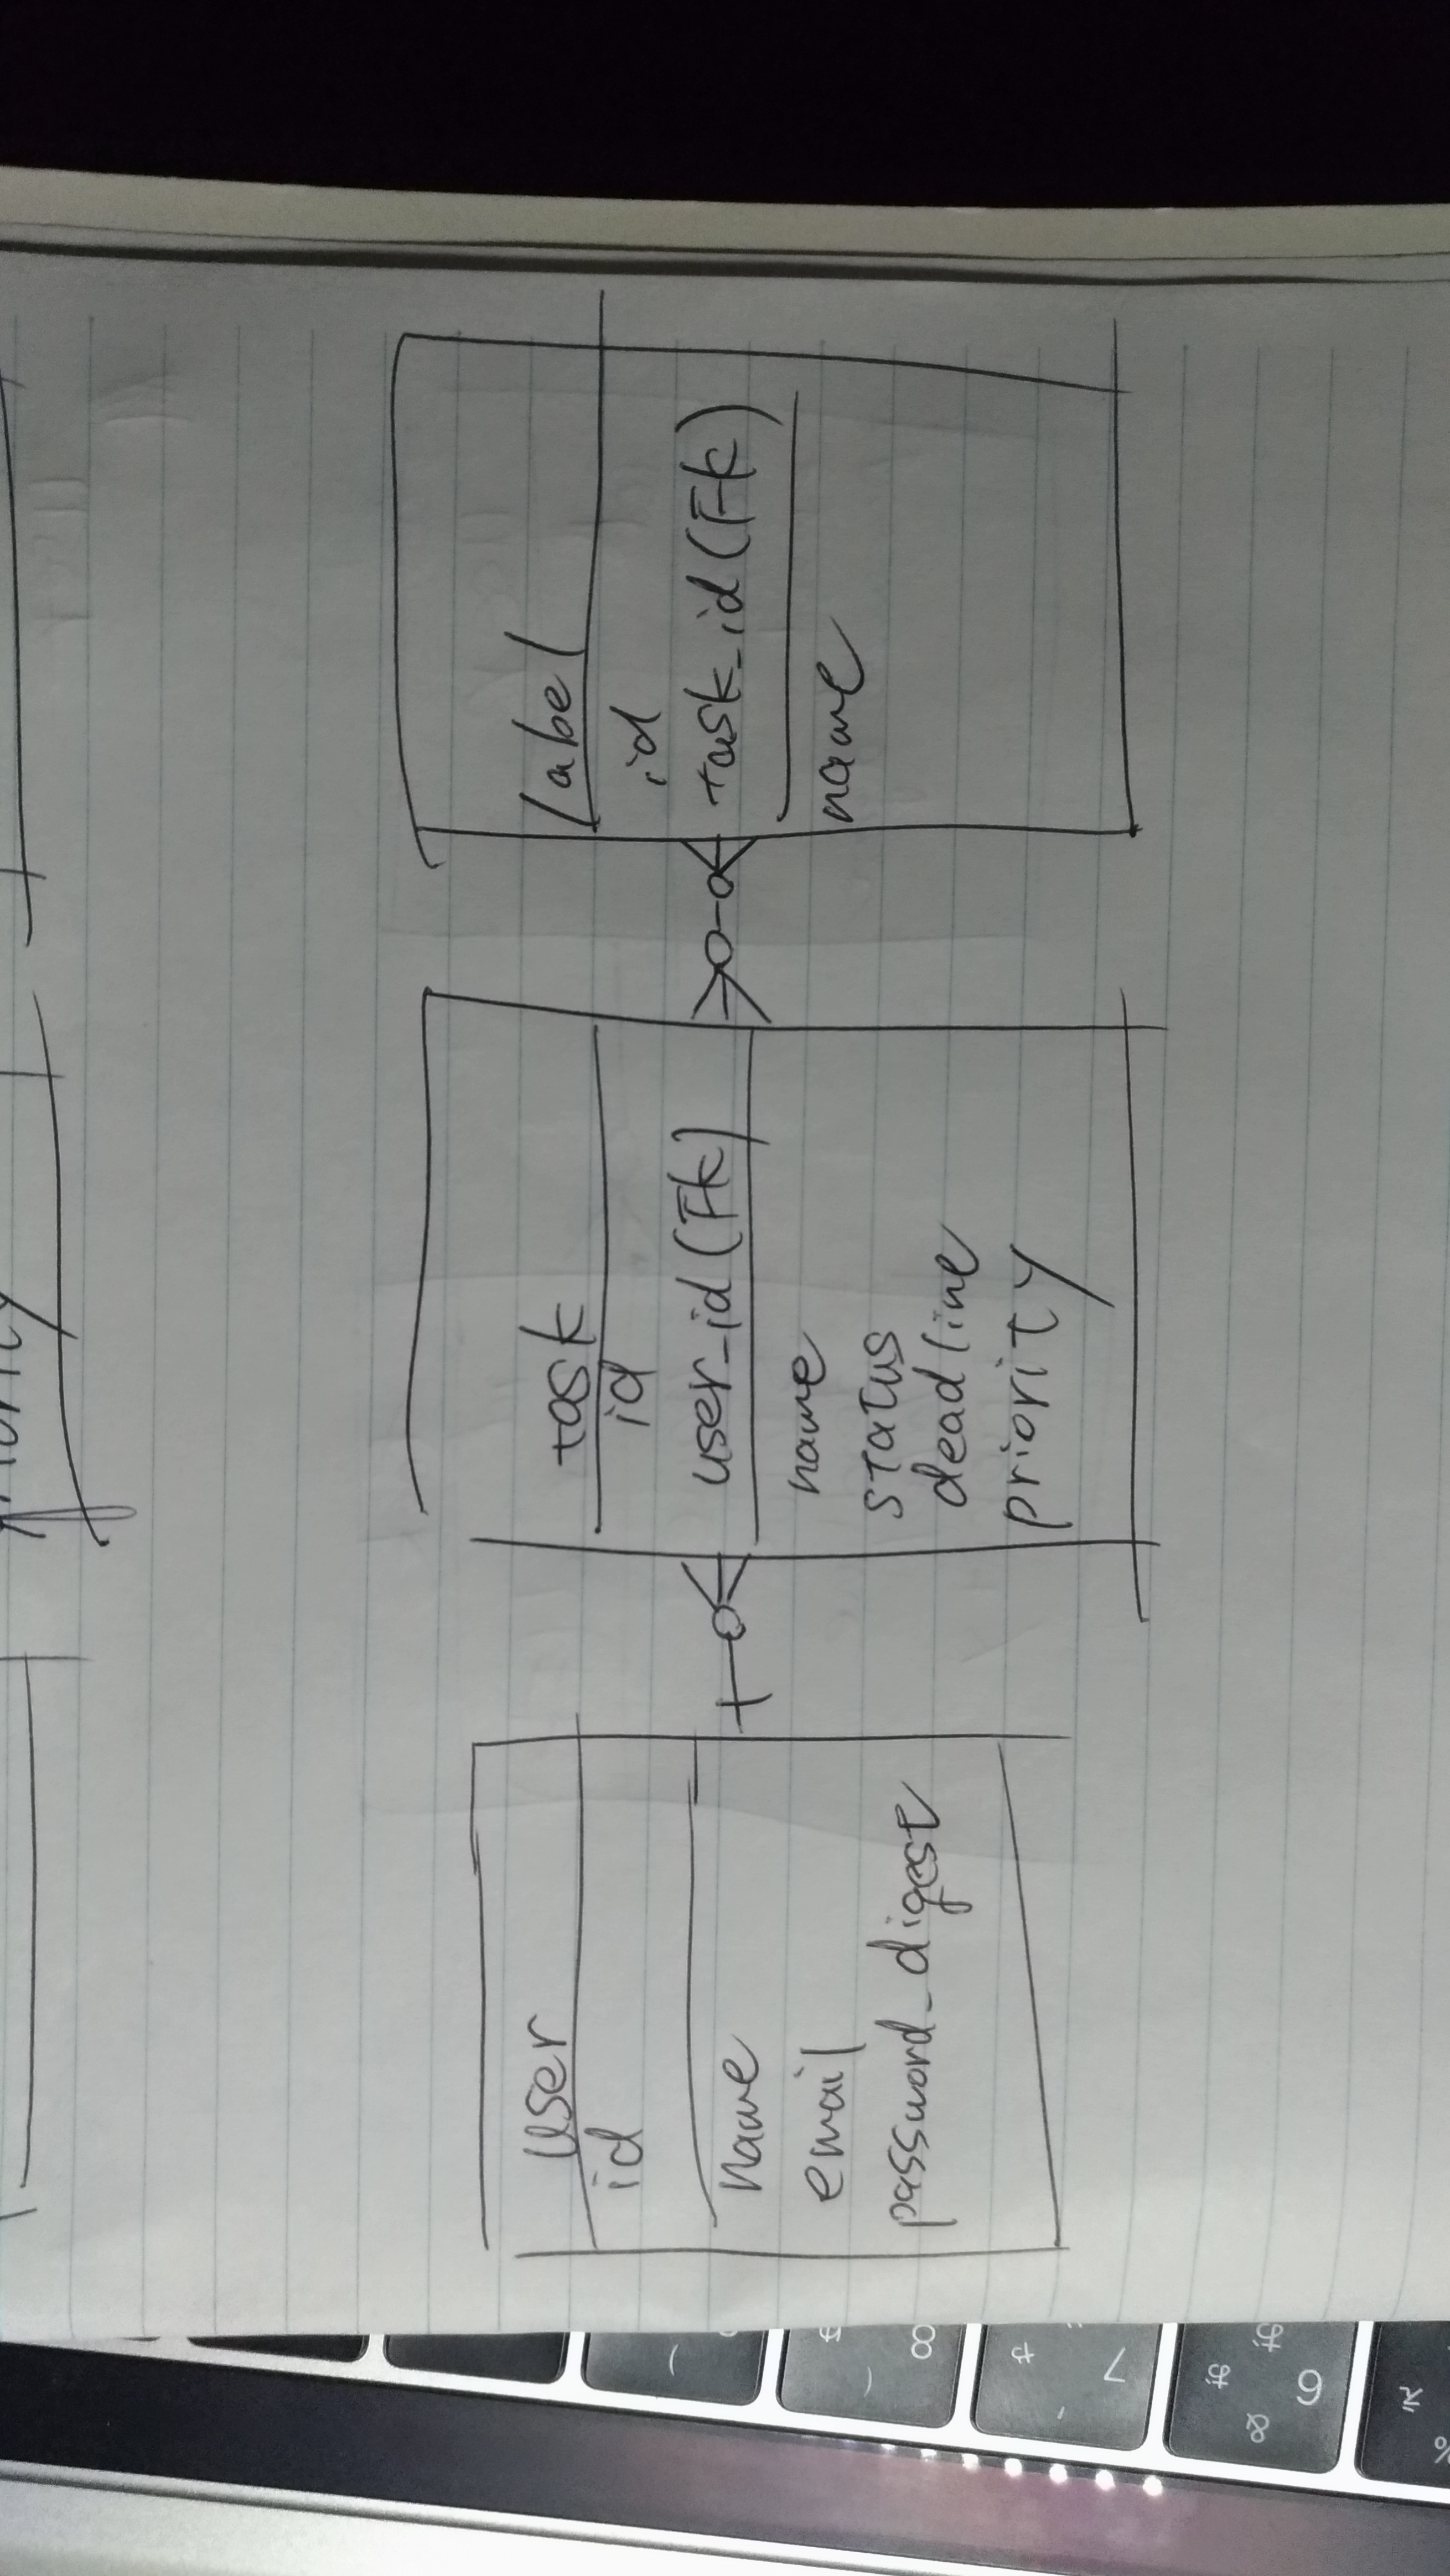 user
id
name
email
password_digest
task
id
user_id(FK)
name
status
deadline
priority
label
id
task_id(FK)
name
8
7
6
%